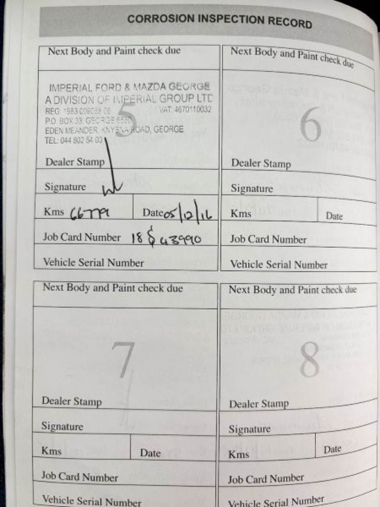 CORROSION INSPECTION RECORD
Next Body and Paint check due
5
IMPERIAL FORD & MAZDA GEORGE
A DIVISION OF IMPERIAL GROUP LTD
VAT: 4670110032
P.O. BOX 33, GEORGE
EDEN MEANDER, KNYSNA ROAD, GEORGE
TEL: 044 802 54 00
Dealer Stamp
Signature
Kms 66791 Date 05/12/16
Job Card Number 18 $ 43990
Vehicle Serial Number
Next Body and Paint check due
6
Dealer Stamp
Signature
Kms Date
Job Card Number
Vehicle Serial Number
Next Body and Paint check due
7
Dealer Stamp
Signature
Kms Date
Job Card Number
Vehicle Serial Number
Next Body and Paint check due
8
Dealer Stamp
Signature
Kms Date
Job Card Number
Vehicle Serial Number